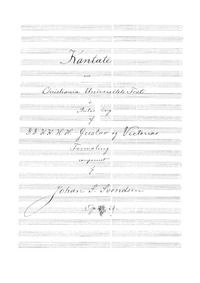 Kantate
ved
Christiania Universitets Fest
i
Anledning
af
D.D.K.K.H.H. Gustav og Victorias
Formæling
componeret
af
Johan S. Svendsen
Op. 29.